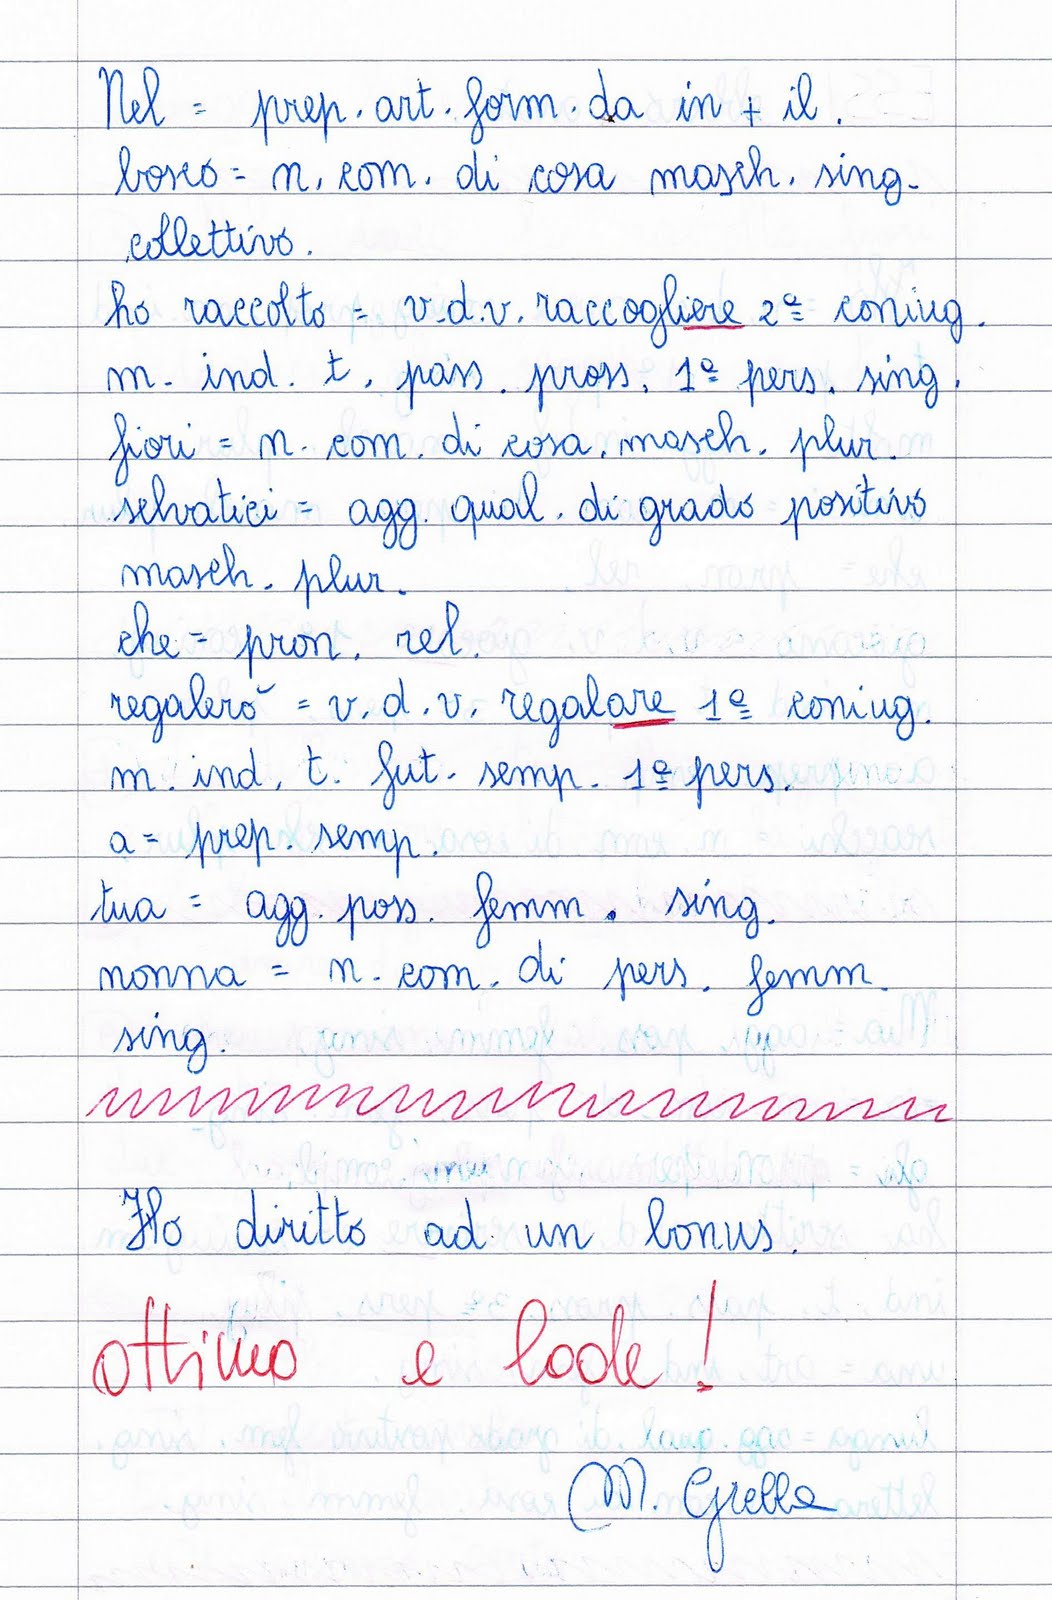 Nel = prep. art. form. da in + il.
bosco = n. com. di cosa masch. sing.
collettivo.
ho raccolto = v. d. v. raccogliere 2ª coniug.
m. ind. t. pass. pross. 1ª pers. sing.
fiori = n. com. di cosa. masch. plur.
selvatici = agg. qual. di grado positivo
masch. plur.
che = pron. rel.
regalerò = v. d. v. regalare 1ª coniug.
m. ind. t. fut. semp. 1ª pers.
a = prep. semp.
tua = agg. poss. femm. sing.
nonna = n. com. di pers. femm.
sing.
Ho diritto ad un bonus.
ottimo e lode!
M. Grella